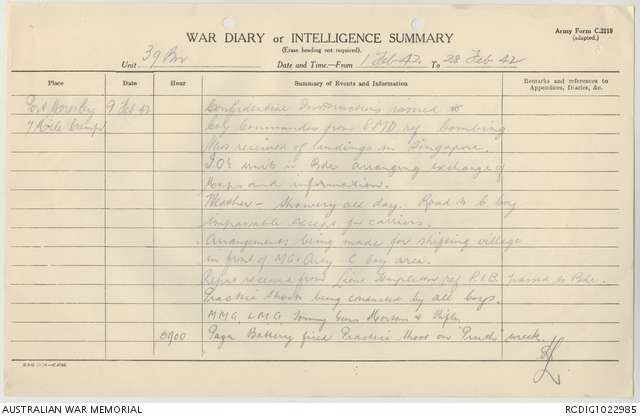 WAR DIARY or INTELLIGENCE SUMMARY
Army Form C.2118
(adapted.)
(Erase heading not required).
Unit 39 Bn Date and Time.—From 1 Feb 42 To 28 Feb 42
Place Date Hour Summary of Events and Information Remarks and references to Appendices, Diaries, &c.
Port Moresby 9 Feb 42 Confidential Instructions issued to
7 Mile Camp Coy Commanders from 8 MD re bombing
News received of landings on Singapore.
I.O's units in Bde arranging exchange of
maps and information.
Weather - Showery all day. Road to C Coy
impassable except for carriers.
Arrangements being made for shifting village
in front of MG Coy C Coy area.
Report received from Lieut Templeton re P.I.B. passed to Bde.
Practice shoots being conducted by all Coys.
M.M.G. L.M.G. Tommy Guns Mortars & Rifles
0900 Paga Battery fired Practice shoot on "Pruth" wreck.
AUSTRALIAN WAR MEMORIAL
RCDIG1022985